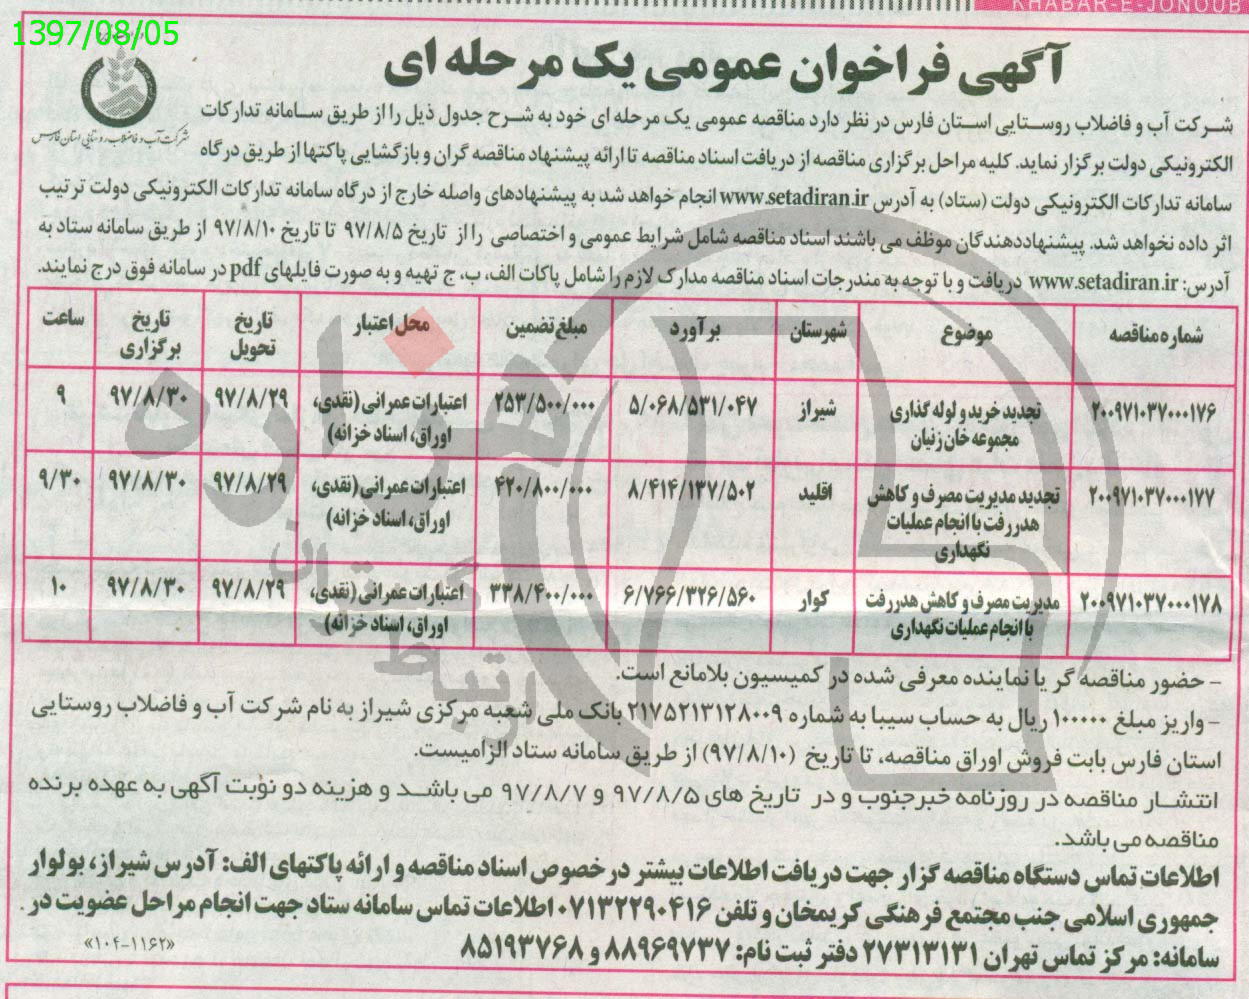 KHABAR-E-JONOUB
1397/08/05
آگهی فراخوان عمومی یک مرحله ای
شرکت آب و فاضلاب روستایی استان فارس
شرکت آب و فاضلاب روستایی استان فارس در نظر دارد مناقصه عمومی یک مرحله ای خود به شرح جدول ذیل را از طریق سامانه تدارکات
الکترونیکی دولت برگزار نماید. کلیه مراحل برگزاری مناقصه از دریافت اسناد مناقصه تا ارائه پیشنهاد مناقصه گران و بازگشایی پاکتها از طریق درگاه
سامانه تدارکات الکترونیکی دولت (ستاد) به آدرس www.setadiran.ir انجام خواهد شد به پیشنهادهای واصله خارج از درگاه سامانه تدارکات الکترونیکی دولت ترتیب
اثر داده نخواهد شد. پیشنهاددهندگان موظف می باشند اسناد مناقصه شامل شرایط عمومی و اختصاصی را از تاریخ ۹۷/۸/۵ تا تاریخ ۹۷/۸/۱۰ از طریق سامانه ستاد به
آدرس: www.setadiran.ir دریافت و با توجه به مندرجات اسناد مناقصه مدارک لازم را شامل پاکات الف، ب، ج تهیه و به صورت فایلهای pdf در سامانه فوق درج نمایند.
شماره مناقصه موضوع شهرستان برآورد مبلغ تضمین محل اعتبار تاریخ تحویل تاریخ برگزاری ساعت
۲۰۰۹۷۱۰۳۷۰۰۰۱۷۶ تجدید خرید و لوله گذاری مجموعه خان زنیان شیراز ۵/۰۶۸/۵۳۱/۰۴۷ ۲۵۳/۵۰۰/۰۰۰ اعتبارات عمرانی (نقدی، اوراق، اسناد خزانه) ۹۷/۸/۲۹ ۹۷/۸/۳۰ ۹
۲۰۰۹۷۱۰۳۷۰۰۰۱۷۷ تجدید مدیریت مصرف و کاهش هدررفت با انجام عملیات نگهداری اقلید ۸/۴۱۴/۱۳۷/۵۰۲ ۴۲۰/۸۰۰/۰۰۰ اعتبارات عمرانی (نقدی، اوراق، اسناد خزانه) ۹۷/۸/۲۹ ۹۷/۸/۳۰ ۹/۳۰
۲۰۰۹۷۱۰۳۷۰۰۰۱۷۸ مدیریت مصرف و کاهش هدررفت با انجام عملیات نگهداری کوار ۶/۷۶۶/۳۲۶/۵۶۰ ۳۳۸/۴۰۰/۰۰۰ اعتبارات عمرانی (نقدی، اوراق، اسناد خزانه) ۹۷/۸/۲۹ ۹۷/۸/۳۰ ۱۰
هزاره
ارتباط گستران
- حضور مناقصه گر یا نماینده معرفی شده در کمیسیون بلامانع است.
- واریز مبلغ ۱۰۰۰۰۰ ریال به حساب سیبا به شماره ۲۱۷۵۲۱۳۱۲۸۰۰۹ بانک ملی شعبه مرکزی شیراز به نام شرکت آب و فاضلاب روستایی
استان فارس بابت فروش اوراق مناقصه، تا تاریخ (۹۷/۸/۱۰) از طریق سامانه ستاد الزامیست.
انتشار مناقصه در روزنامه خبرجنوب و در تاریخ های ۹۷/۸/۵ و ۹۷/۸/۷ می باشد و هزینه دو نوبت آگهی به عهده برنده
مناقصه می باشد.
اطلاعات تماس دستگاه مناقصه گزار جهت دریافت اطلاعات بیشتر در خصوص اسناد مناقصه و ارائه پاکتهای الف: آدرس شیراز، بولوار
جمهوری اسلامی جنب مجتمع فرهنگی کریمخان و تلفن ۰۷۱۳۲۲۹۰۴۱۶ اطلاعات تماس سامانه ستاد جهت انجام مراحل عضویت در
سامانه: مرکز تماس تهران ۲۷۳۱۳۱۳۱ دفتر ثبت نام: ۸۸۹۶۹۷۳۷ و ۸۵۱۹۳۷۶۸
«۱۰۴-۱۱۶۲»